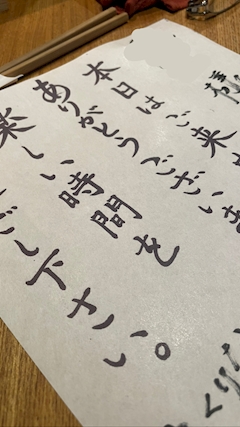 様
本日はご来
ありがとうございま
楽しい時間を
ごし下さい。
くり